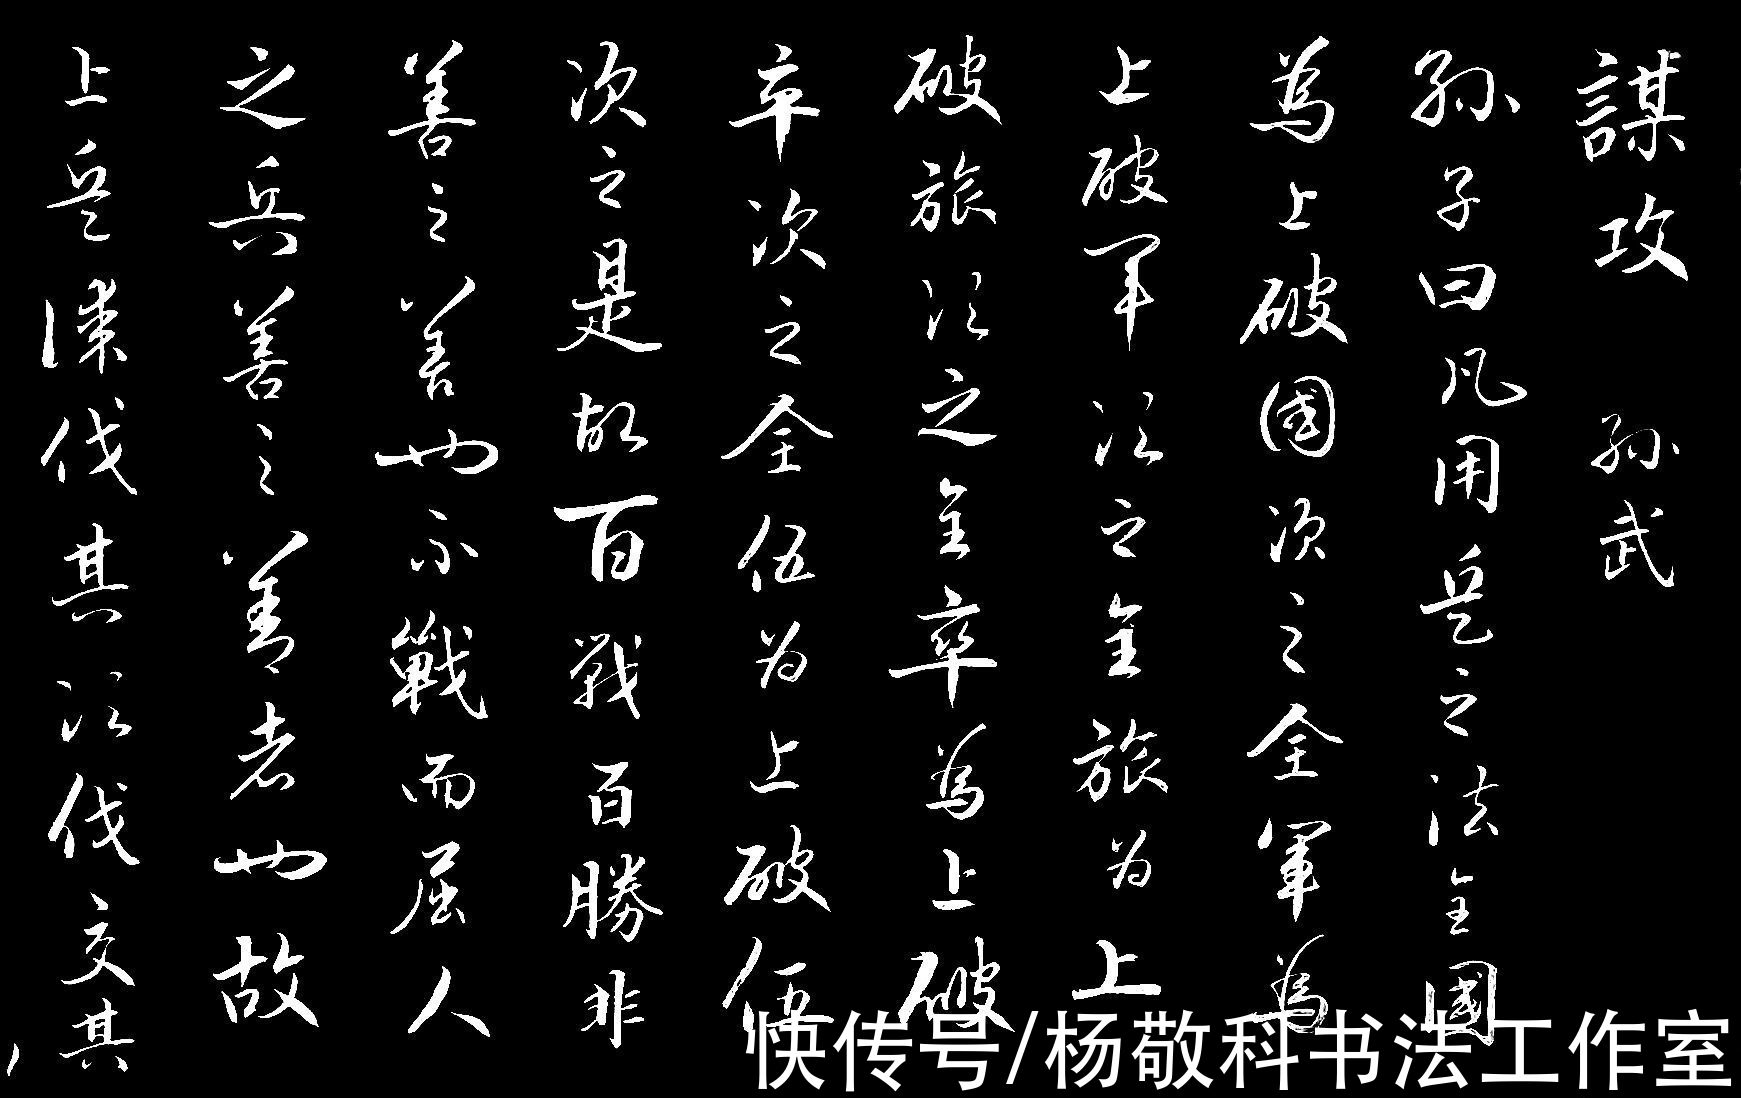 謀攻 孫武
孫子曰凡用兵之法全國
為上破國次之全軍為
上破軍次之全旅为上
破旅次之全卒為上破
卒次之全伍为上破伍
次之是故百戰百勝非
善之善也不戰而屈人
之兵善之善者也故
上兵謀伐其次伐交其
快传号/杨敬科书法工作室